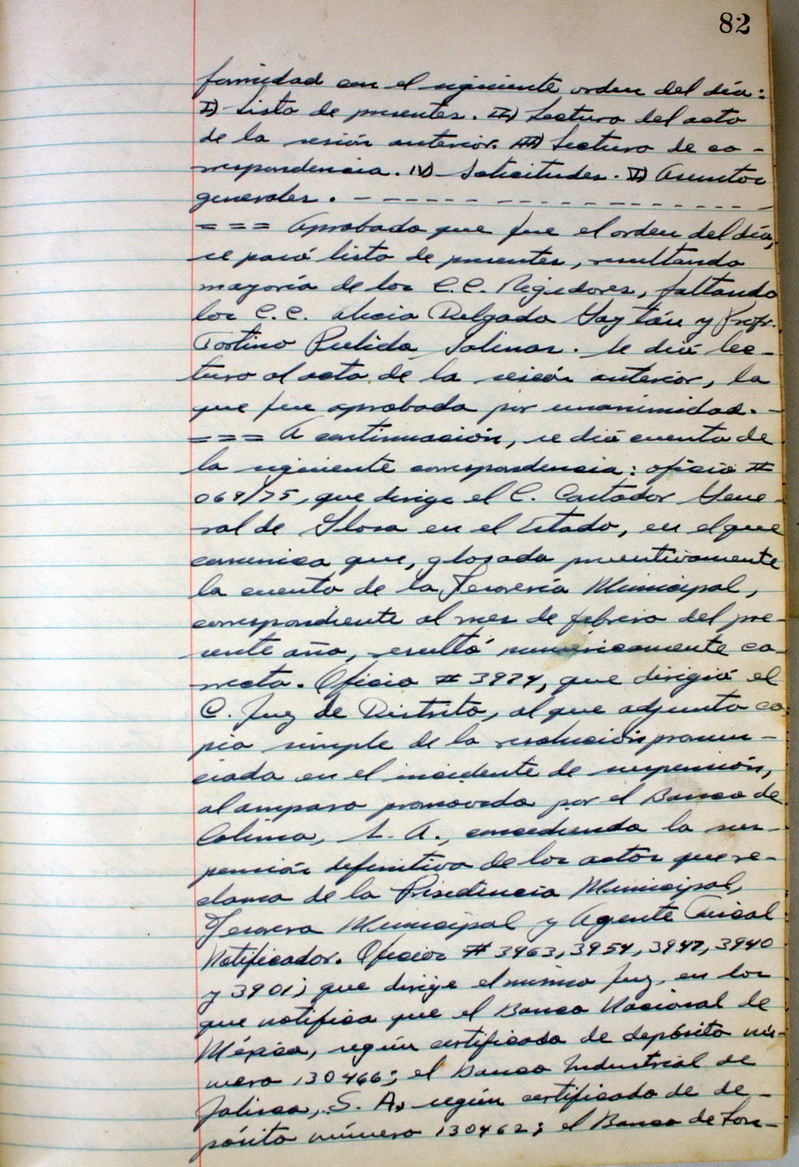 82
formidad con el siguiente orden del día:
I) Lista de presentes. II) Lectura del acta
de la sesión anterior. III) Lectura de co-
rrespondencia. IV) Solicitudes. V) Asuntos
generales. - - - - - - - - - - - - - - - - -
= = = Aprobado que fue el orden del día,
se pasó lista de presentes, resultando
mayoría de los C.C. Regidores, faltando
los C.C. Alicia Delgado Gaytán y Profr.
Tortino Pulido Salinas. Se dió lec-
tura al acta de la sesión anterior, la
que fue aprobada por unanimidad. -
= = = A continuación, se dió cuenta de
la siguiente correspondencia: oficio #
069/75, que dirige el C. Contador Gene-
ral de Glosa en el Estado, en el que
comunica que, glosada preventivamente
la cuenta de la Tesorería Municipal,
correspondiente al mes de febrero del pre-
sente año, resultó numéricamente co-
rrecta. Oficio # 3974, que dirigió el
C. Juez de Distrito, al que adjunta co
pia simple de la resolución pronun-
ciada en el incidente de suspensión,
al amparo promovido por el Banco de
Colima, S. A., concediendo la sus-
pensión definitiva de los actos que re-
clama de la Presidencia Municipal,
Tesorera Municipal y Agente Fiscal
Notificador. Oficios # 3963, 3954, 3947, 3940
y 3901; que dirige el mismo Juez, en los
que notifica que el Banco Nacional de
México, según certificado de depósito nú-
mero 130466; el Banco Industrial de
Jalisco, S. A, según certificado de de-
pósito número 130462; el Banco de Lon-